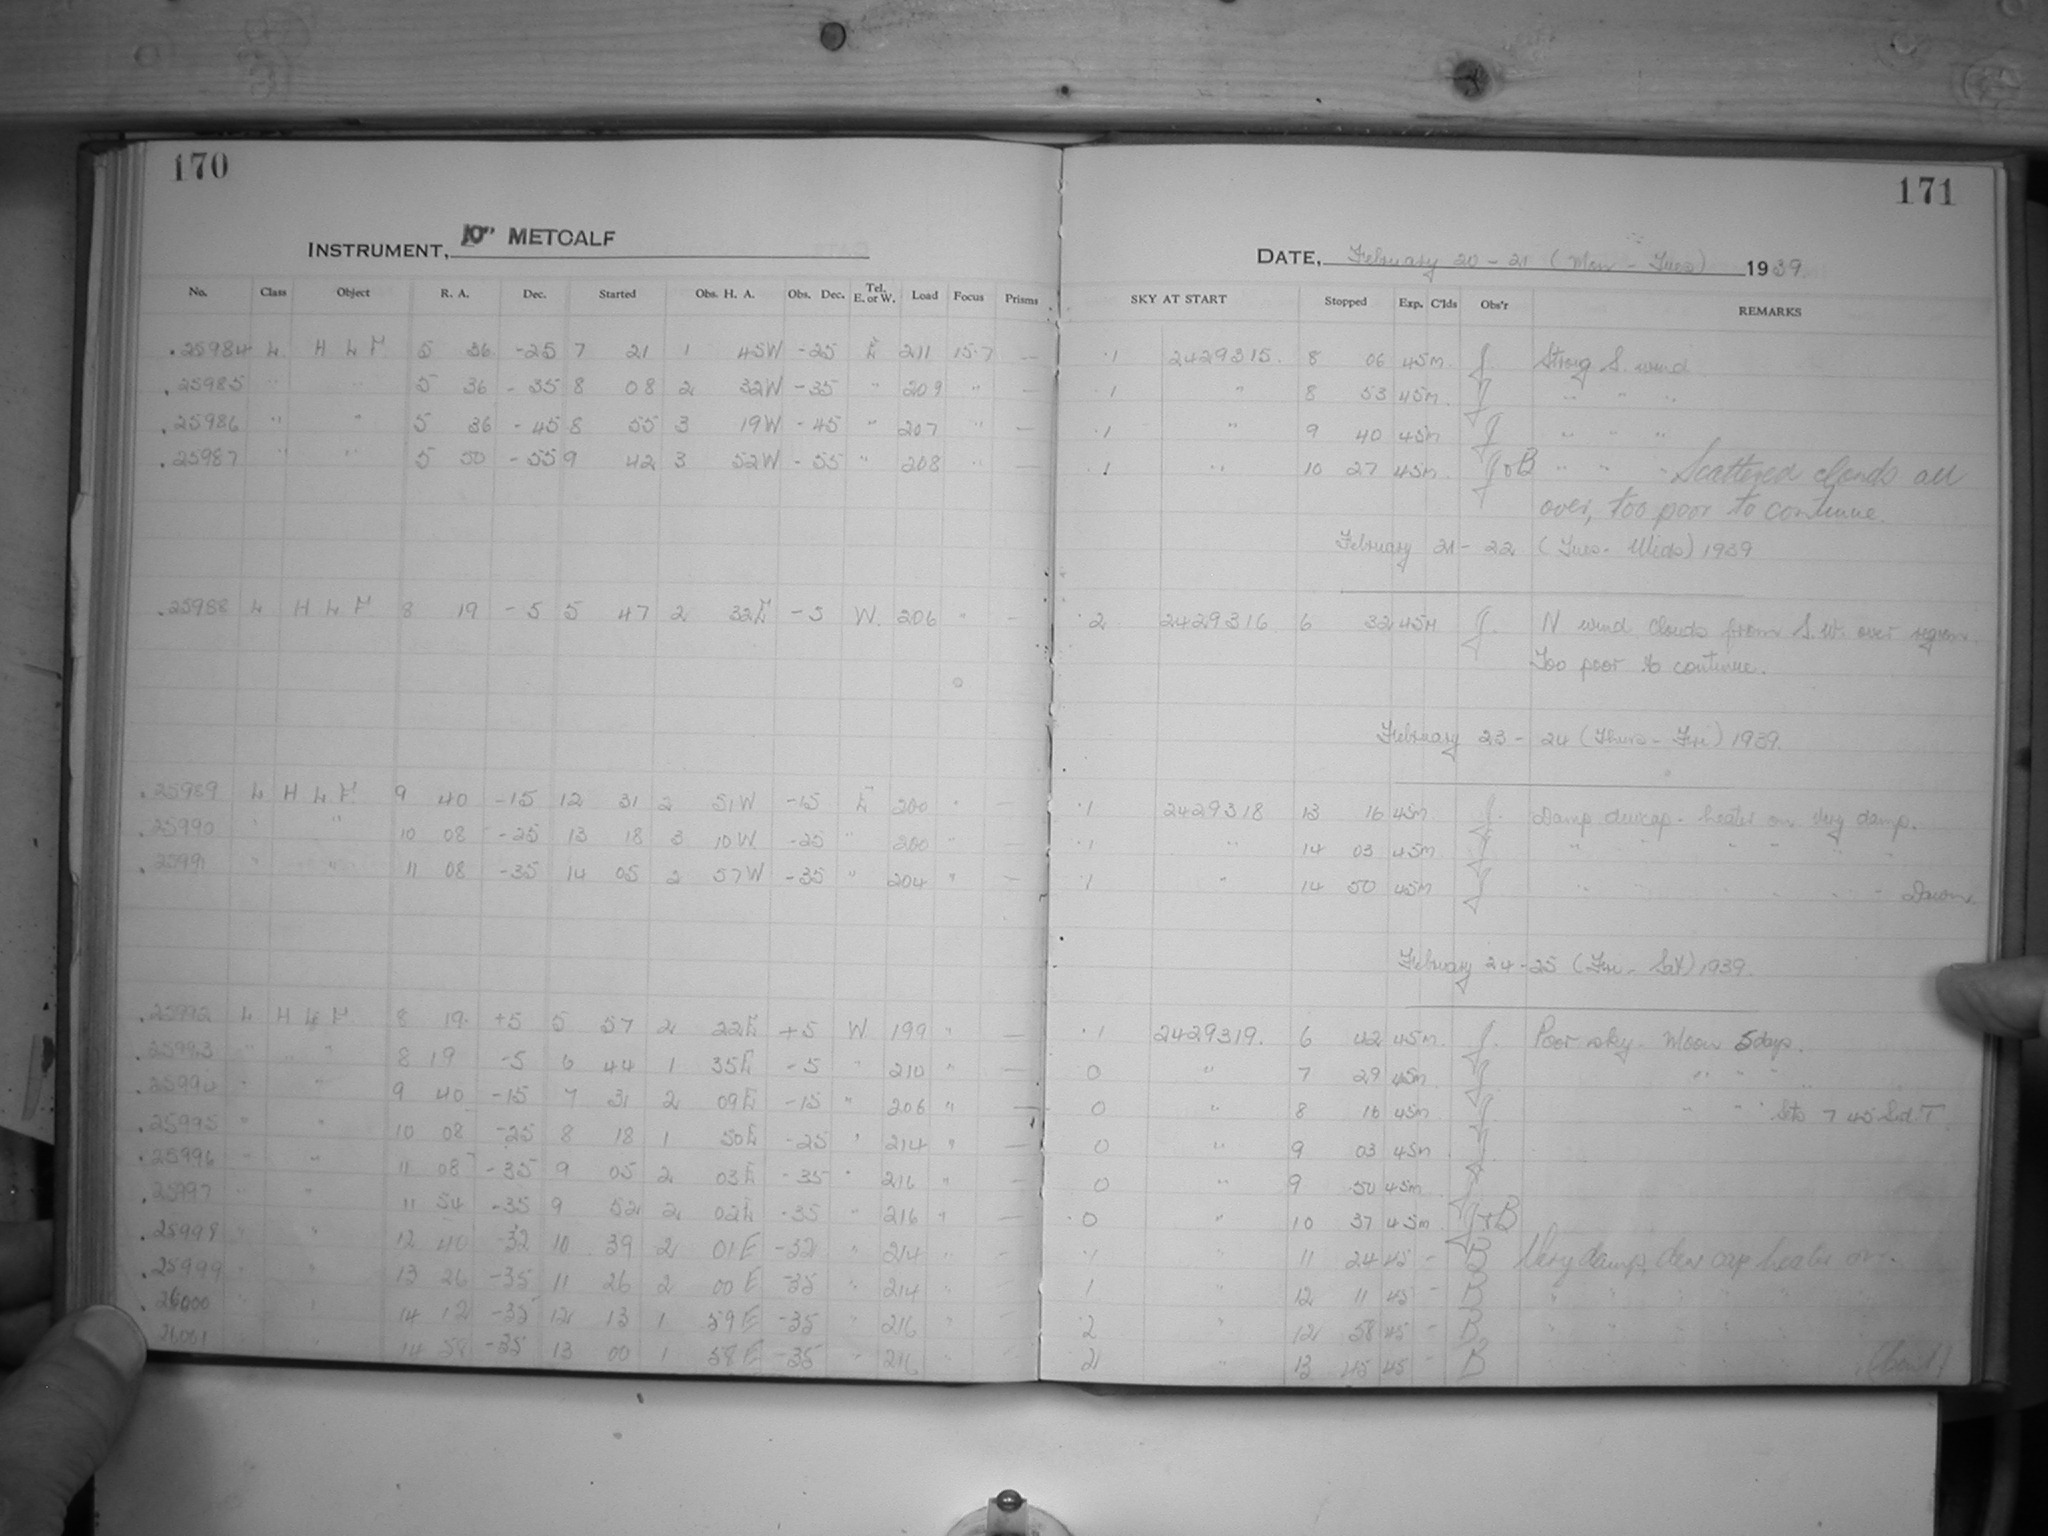 170
INSTRUMENT, 10" METCALF
No. Class Object R. A. Dec. Started Obs. H. A. Obs. Dec. Tel. E. or W. Load Focus Prisms
.25984 L H L F 5 36 -25 7 21 1 45W -25 E 211 15.7 —
.25985 " " 5 36 -35 8 08 2 32W -35 " 209 " —
.25986 " " 5 36 -45 8 55 3 19W -45 " 207 " —
.25987 " " 5 50 -55 9 42 3 52W -55 " 208 " —
.25988 L H L F 8 19 -5 5 47 2 32E -5 W. 206 " —
.25989 L H L F 9 40 -15 12 31 2 51W -15 E 200 " —
.25990 " " 10 08 -25 13 18 3 10W -25 " 200 " —
.25991 " " 11 08 -35 14 05 2 57W -35 " 204 " —
.25992 L H L F 8 19 +5 5 57 2 22E +5 W 199 " —
.25993 " " 8 19 -5 6 44 1 35E -5 " 210 " —
.25994 " " 9 40 -15 7 31 2 09E -15 " 206 " —
.25995 " " 10 08 -25 8 18 1 50E -25 " 214 " —
.25996 " " 11 08 -35 9 05 2 03E -35 " 216 " —
.25997 " " 11 54 -35 9 52 2 02E -35 " 216 " —
.25998 " " 12 40 -32 10 39 2 01E -32 " 214 " —
.25999 " " 13 26 -35 11 26 2 00E -35 " 214 " —
.26000 " " 14 12 -35 12 13 1 59E -35 " 216 " —
26001 " 14 58 -35 13 00 1 58E -35 " 216 " —
171
DATE, February 20-21 (Mon - Tues) 1939
SKY AT START Stopped Exp. C'lds Obs'r REMARKS
.1 2429315. 8 06 45m. J. Strong S. wind
.1 " 8 53 45m. J " " "
.1 " 9 40 45m J " " "
.1 " 10 27 45m. J+B " " " Scattered clouds all
over, too poor to continue.
February 21-22 (Tues- Weds) 1939
.2 2429316 6 32 45m J. N wind clouds from S.W. over region
Too poor to continue.
February 23-24 (Thurs-Fri) 1939.
.1 2429318 13 16 45m. J. Damp dewcap-heater on very damp.
.1 " 14 03 45m J " " " " " "
.1 " 14 50 45m J " " " " " " Dawn.
February 24-25 (Fri- Sat) 1939.
.1 2429319. 6 42 45m. J. Poor sky- Moon 5days.
0 " 7 29 45m J " " "
0 " 8 16 45m J " " " Sets 7 45 Sid. T
0 " 9 03 45m J
0 " 9 50 45m J
.0 " 10 37 45m J+B
.1 " 11 24 45 - B Very damp, dew cap heater on.
1 " 12 11 45 - B " " " " " "
2 " 12 58 45 - B " " " " " "
2 " 13 45 45 - B (Cont)